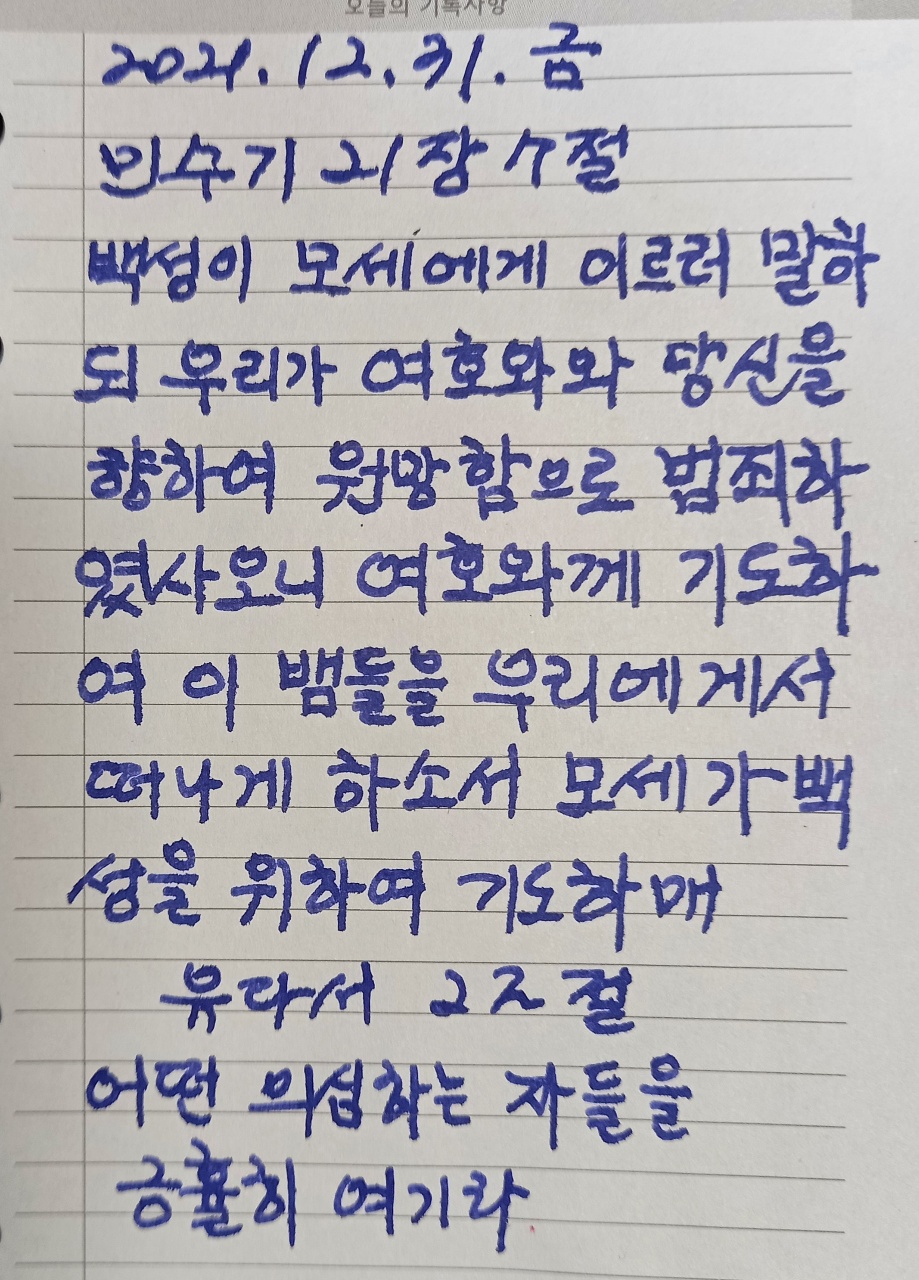 오늘의 기록사항
2021.12.31.금
민수기 21장 7절
백성이 모세에게 이르러 말하
되 우리가 여호와와 당신을
향하여 원망함으로 범죄하
였사오니 여호와께 기도하
여 이 뱀들을 우리에게서
떠나게 하소서 모세가 백
성을 위하여 기도하매
유다서 22절
어떤 의심하는 자들을
긍휼히 여기라